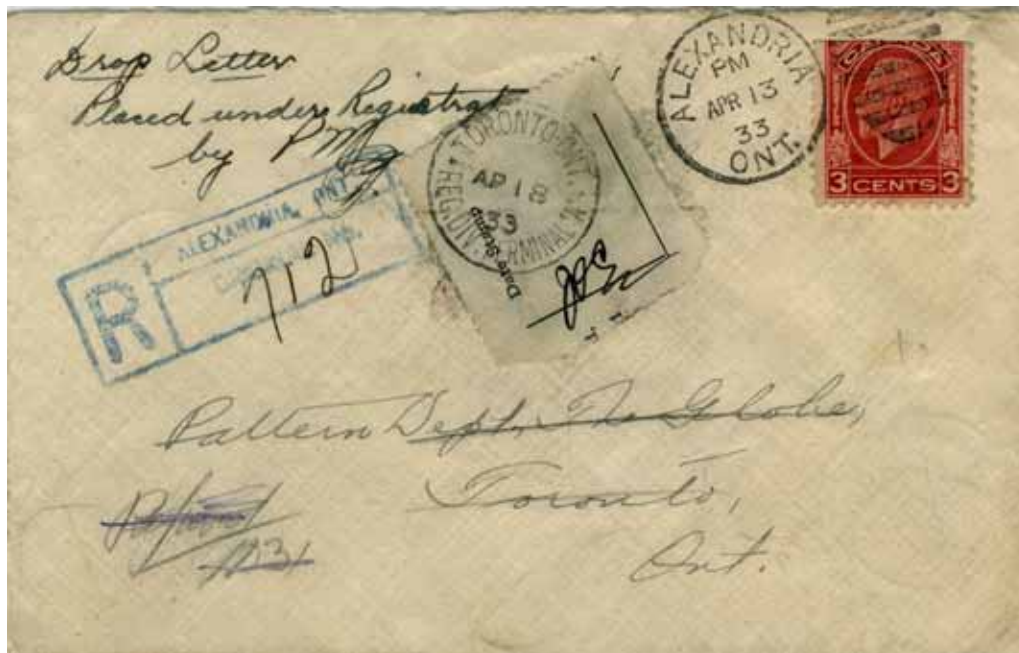 Drop Letter
Placed under Registrat
by PM
ALEXANDRIA
PM
APR 13
33
ONT.
CANADA
3 CENTS 3
TORONTO-ONT.
AP 18
33
REG. DIV. TERMINAL "A"
Date stamp
R
ALEXANDRIA, ONT
712
Pattern Dept, The Globe,
Toronto,
Ont.